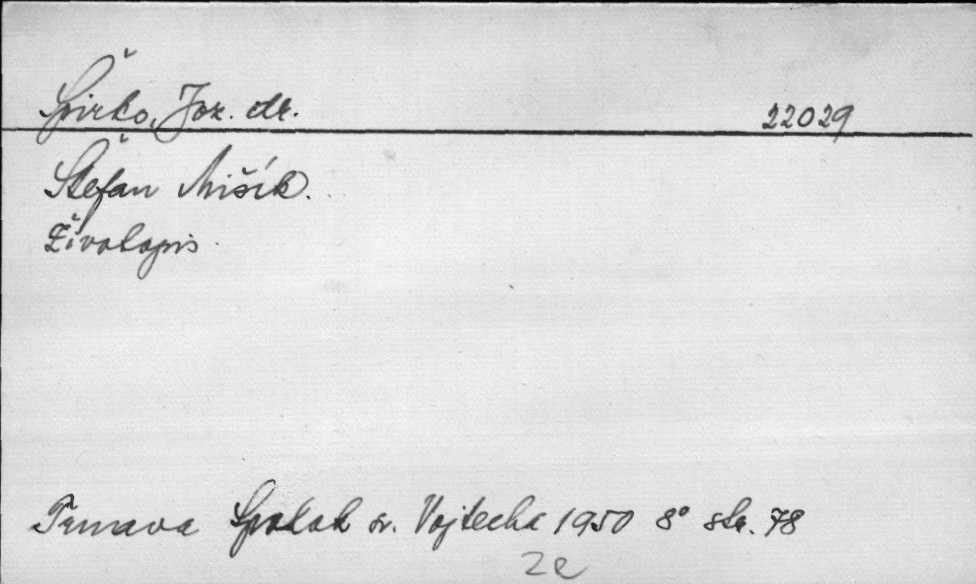 Špirko, Joz. dr. 22029
Štefan Mišík.
Životopis
Trnava Spolok sv. Vojtecha 1950 8° str. 78